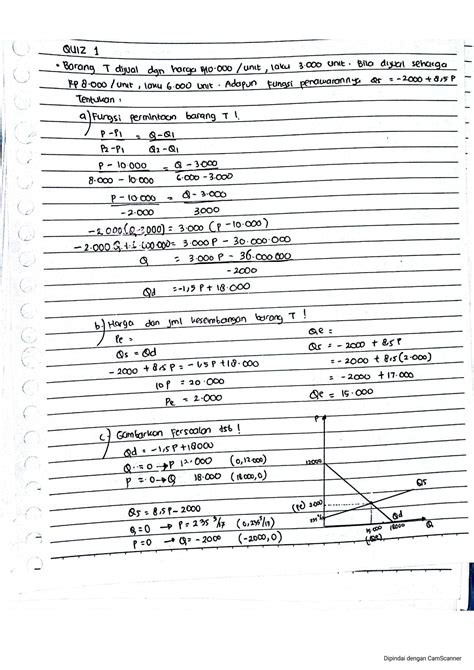 QUIZ 1
• Barang T dijual dgn harga Rp10.000 / unit, laku 3.000 unit. Bila dijual seharga
Rp 8.000 / unit, laku 6.000 unit. Adapun fungsi penawarannya Qs = -2000 + 8,5 P
Tentukan :
a) Fungsi permintaan barang T !
P - P1 = Q - Q1
P2 - P1 Q2 - Q1
P - 10.000 = Q - 3.000
8.000 - 10.000 6.000 - 3.000
P - 10.000 = Q - 3.000
-2.000 3000
-2.000 (Q - 3.000) = 3.000 (P - 10.000)
-2.000 Q + 6.000.000 = 3.000 P - 30.000.000
Q = 3.000 P - 36.000.000
-2000
Qd = -1,5 P + 18.000
b) Harga dan jml keseimbangan barang T !
Pe =
Qs = Qd
-2000 + 8,5 P = -1,5 P + 18.000
10 P = 20.000
Pe = 2.000
Qe =
Qs = -2000 + 8,5 P
= -2000 + 8,5 (2.000)
= -2000 + 17.000
Qe = 15.000
c) Gambarkan Persoalan tsb !
Qd = -1,5 P + 18000
Q = 0 → P 12.000 (0, 12.000)
P = 0 → Q 18.000 (18000, 0)
Qs = 8,5 P - 2000
Q = 0 → P = 235 5/17 (0, 235 5/17)
P = 0 → Q = -2000 (-2000, 0)
P
12000
Qs
(Pe)
Qd
18000
Q
(Qe)
Dipindai dengan CamScanner